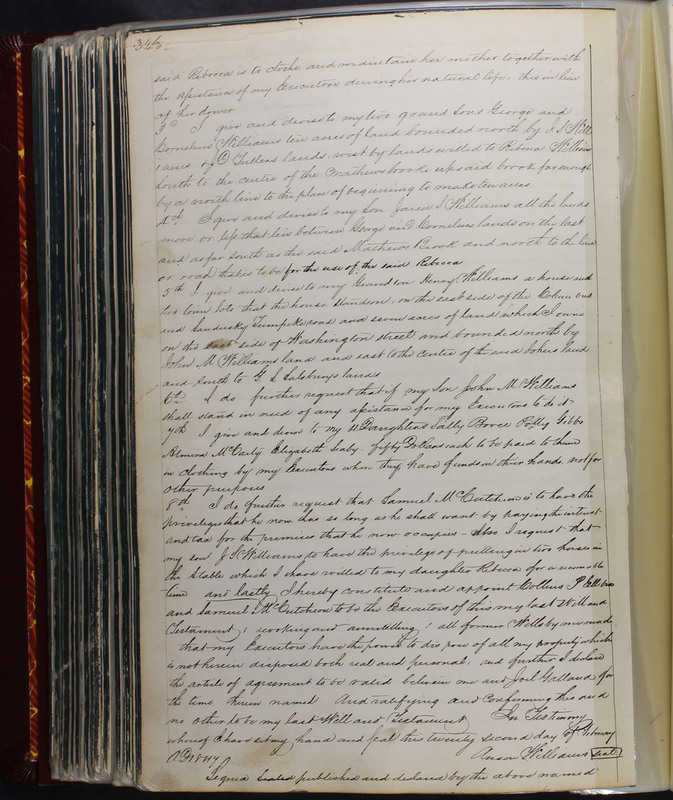 346
said Rebecca is to clothe and maintain her mother together with
the assistance of my Executors during her natural life, this in lieu
of her dower
3d I give and devise to my two grand Sons George and
Cornelius Williams ten acres of land bounded north by J S Will
iams & D Tullers lands west by lands willed to Rebecca Williams
South to the centre of the Mathews brook up said brook far enough
by a north line to the place of beginning to make ten acres
4th I give and devise to my Son S Williams all the lands
more or less that lies between George and Cornelius lands on the east
and as far South as the said Mathews Brook and north to the line
or road that is to be for the use of the said Rebecca
5th I give and devise to my Grandson Henry Williams a house and
two town lots that the house stands on, on the east side of the Columbus
and Sandusky Turnpike road and seven acres of land which I own
on the east side of Washington street and bounded north by
John M Williams land and east to the centre of the land
and South to G S Salsburys lands
6th I do further request that if my Son John M Williams
shall stand in need of any assistance for my Executors to do it
7th I give and devise to my Daughters Sally Borce Polly Gibbs
Almira McCarty Elizabeth fifty Dollars each to be paid to them
in clothing by my Executors when they have funds in their hands not for
other purposes
8th I do further request that Samuel McCutchen is to have the
privileges that he now has so long as he shall want by paying the interest
and tax for the premises that he now occupies - Also I request that
my son J S Williams to have the privilege of putting in two horses in
the Stable which I have willed to my daughter Rebecca for a reasonable
time and lastly I hereby constitute and appoint Collins P
and Samuel McCutchen to be the Executors of this my last Will and
Testament, revoking and annulling all former Wills by me made
that my Executors have the power to dispose of all my property which
is not herein disposed both real and personal. and further I declare
the article of agreement to be valid between me and Joel Galland for
the time therein named And ratifying and confirming this and
no other to be my last Will and Testament In Testimony
whereof I have set my hand and seal this twenty second day of February
AD 1847 Anson Williams seal
Signed Sealed published and declared by the above named